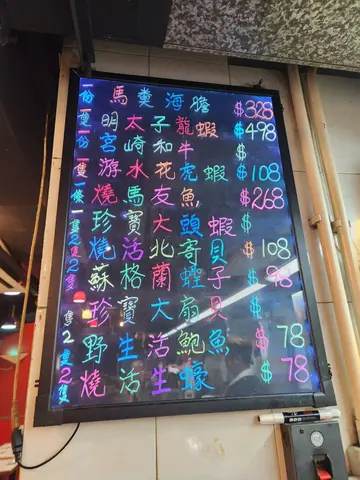 一份 馬糞海膽 $328
一隻 明太子龍蝦 $498
一份 宮崎和牛 $
一隻 游水花虎蝦 $108
一條 燒馬友魚 $268
1隻 珍寶大頭蝦
2隻 燒活北寄貝 $108
2隻 蘇格蘭蟶子 $98
珍寶大扇貝 $
2隻 野生活鮑魚 $78
2隻 燒活生蠔 $78